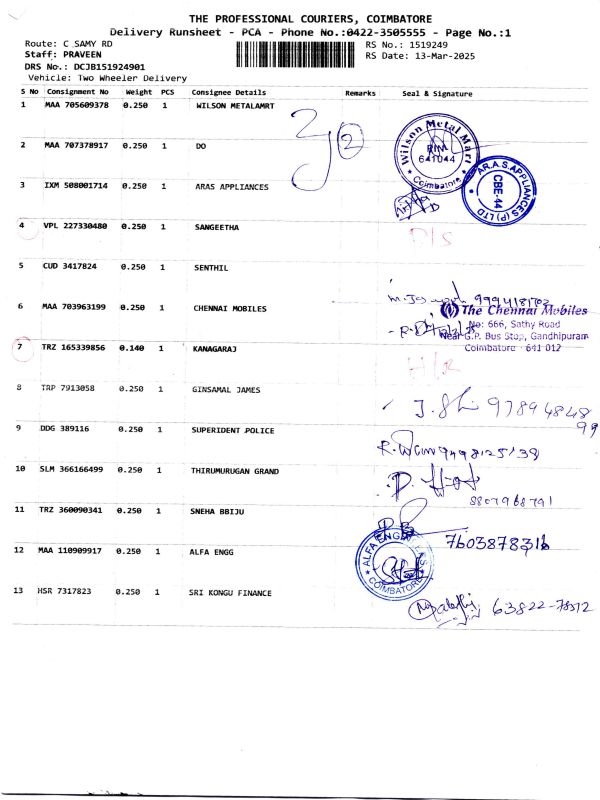 THE PROFESSIONAL COURIERS, COIMBATORE
Delivery Runsheet - PCA - Phone No.:0422-3505555 - Page No.:1
Route: C SAMY RD
RS No.: 1519249
Staff: PRAVEEN
RS Date: 13-Mar-2025
DRS No.: DCJB151924901
Vehicle: Two Wheeler Delivery
S No Consignment No Weight PCS Consignee Details Remarks Seal & Signature
1 MAA 705609378 0.250 1 WILSON METALAMRT
2
Wilson Metal Mart
PIN
641044
Coimbatore
2 MAA 707378917 0.250 1 DO
3 IXM 508001714 0.250 1 ARAS APPLIANCES
A.R.A.S APPLIANCES (P) LTD
CBE-44
4 VPL 227330480 0.250 1 SANGEETHA
D/S
5 CUD 3417824 0.250 1 SENTHIL
6 MAA 703963199 0.250 1 CHENNAI MOBILES
The Chennai Mobiles
No: 666, Sathy Road
Near G.P. Bus Stop, Gandhipuram
Coimbatore - 641 012
7 TRZ 165339856 0.140 1 KANAGARAJ
H/R
8 TRP 7913058 0.250 1 GINSAMAL JAMES
97894848
99
9 DDG 389116 0.250 1 SUPERIDENT POLICE
10 SLM 366166499 0.250 1 THIRUMURUGAN GRAND
8807968791
11 TRZ 360090341 0.250 1 SNEHA BBIJU
7603878316
12 MAA 110909917 0.250 1 ALFA ENGG
ALFA ENGG
COIMBATORE
13 HSR 7317823 0.250 1 SRI KONGU FINANCE
63822-78572